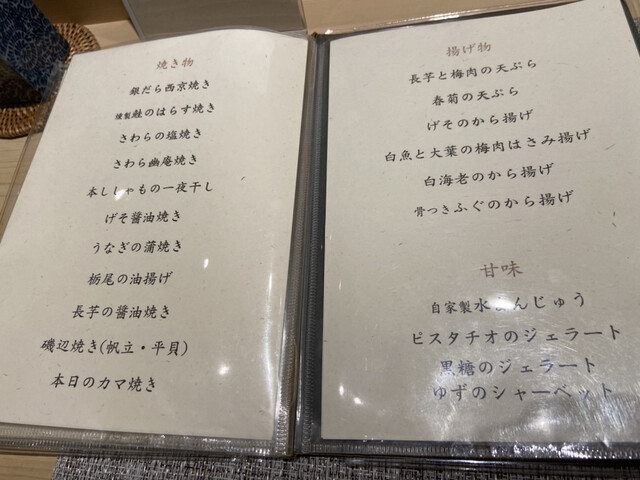 焼き物
銀だら西京焼き
燻製鮭のはらす焼き
さわらの塩焼き
さわら幽庵焼き
本ししゃもの一夜干し
げそ醤油焼き
うなぎの蒲焼き
栃尾の油揚げ
長芋の醤油焼き
磯辺焼き(帆立・平貝)
本日のカマ焼き
揚げ物
長芋と梅肉の天ぷら
春菊の天ぷら
げそのから揚げ
白魚と大葉の梅肉はさみ揚げ
白海老のから揚げ
骨つきふぐのから揚げ
甘味
自家製水まんじゅう
ピスタチオのジェラート
黒糖のジェラート
ゆずのシャーベット